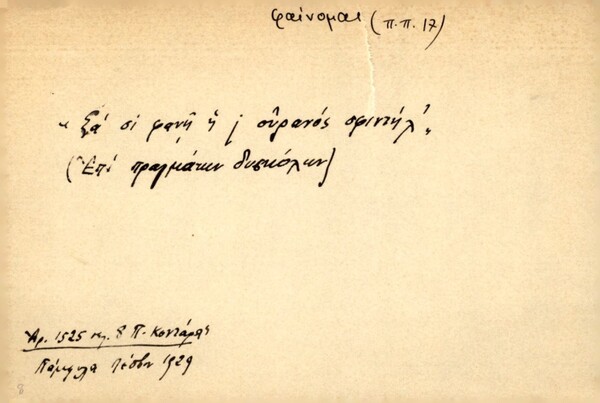 φαίνομαι (π.π. 17)
« Ξά σί φανῆ ἡ j οὐρανός σφιντήλ' »
(Ἐπί πραγμάτων δυσκόλων)
Ἀρ. 1525 σελ. 8 Π. Κοντάρα
Πάμφιλα Λέσβου 1929
8